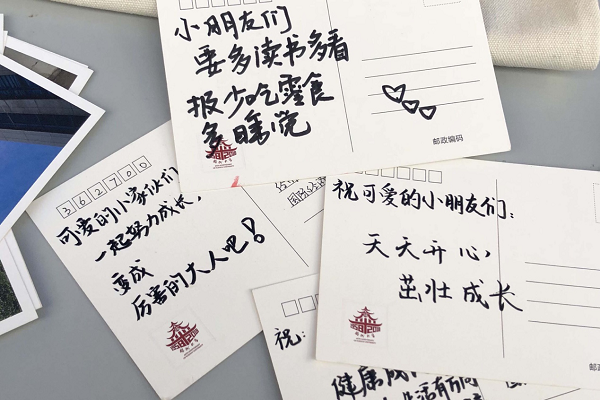 小朋友们
要多读书多看
报少吃零食
多睡觉
邮政编码
362700
可爱的小家伙们
一起努力成长，
变成
厉害的大人吧！
祝可爱的小朋友们：
天天开心，
茁壮成长
祝：
健康成